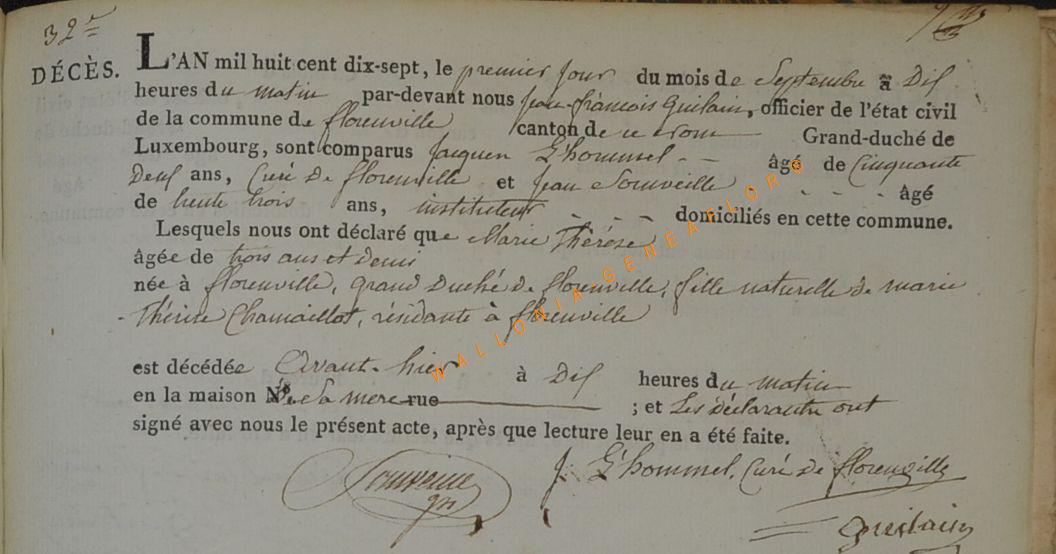 32e
DÉCÈS.
L'AN mil huit cent dix-sept, le premier jour du mois de Septembre à Dix
heures du matin par-devant nous Jean-françois Guilain, officier de l'état civil
de la commune de florenville canton de ce nom Grand-duché de
Luxembourg, sont comparus Jacques L'hommel - - âgé de Cinquante
Deux ans, Curé de florenville et Jean Souveille - - - âgé
de trente trois ans, instituteur - - - domiciliés en cette commune.
Lesquels nous ont déclaré que Marie Thérèse
âgée de trois ans et demi
née à florenville, grand Duché de florenville, fille naturelle de marie
Thérèse Chamaillot, résidante à florenville
est décédée Avant-hier à Dix heures du matin
en la maison De Sa mere rue ; et Les déclarants ont
signé avec nous le présent acte, après que lecture leur en a été faite.
J. L'hommel, Curé de florenville
Guilain
WALLONIA-GENEALOR